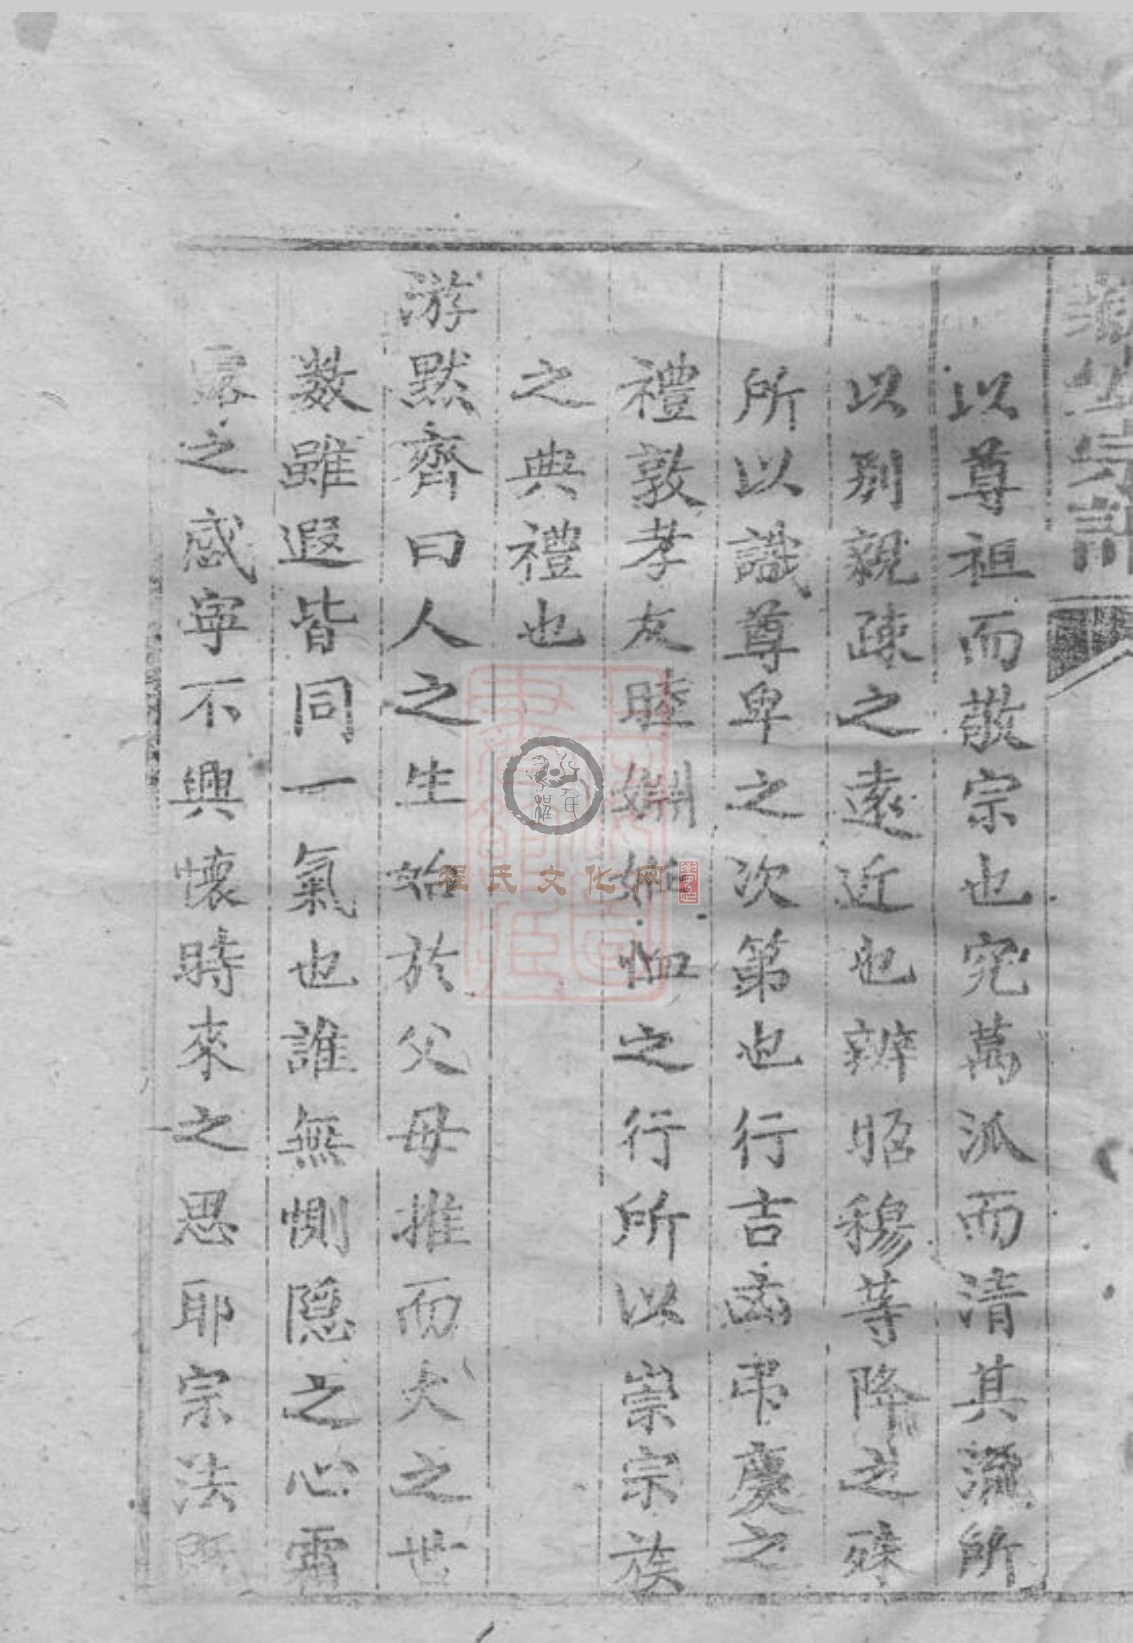 以尊祖而敬宗也究萬派而清其源所
以別親疎之遠近也辨昭穆等降之殊
所以識尊卑之次第也行吉凶弔慶之
禮敦孝友睦婣姙恤之行所以崇宗族
之典禮也
游默齊曰人之生始於父母推而大之世
数雖遐皆同一氣也誰無惻隠之心霜
露之感寧不興懷時來之思耶宗法
程氏文化网